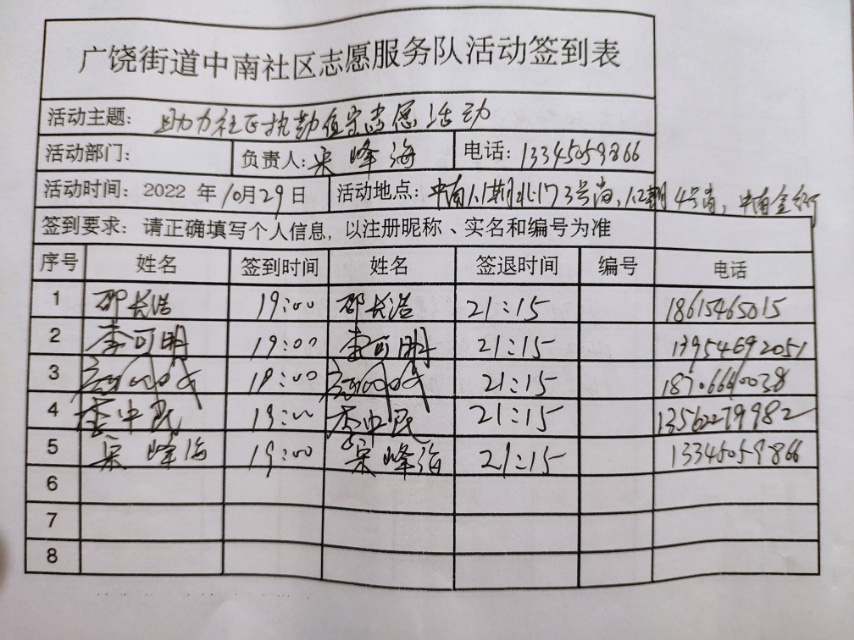 广饶街道中南社区志愿服务队活动签到表
活动主题: 助力社区执勤值守志愿活动
活动部门: 负责人: 宋峰海 电话: 13345059866
活动时间: 2022 年10月29日 活动地点: 中南1.1期北门3号岗、1.2期4号岗,中南
签到要求: 请正确填写个人信息, 以注册昵称、实名和编号为准
序号 姓名 签到时间 姓名 签退时间 编号 电话
1 邵长浩 19:00 邵长浩 21:15 18615465015
2 李可明 19:00 李可明 21:15 13954692051
3 19:00 21:15
4 李中民 19:00 李中民 21:15 13562279982
5 宋峰海 19:00 宋峰海 21:15 13345059866
6
7
8